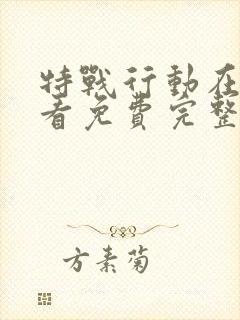 特戰行動在
看免費完整
方素菊